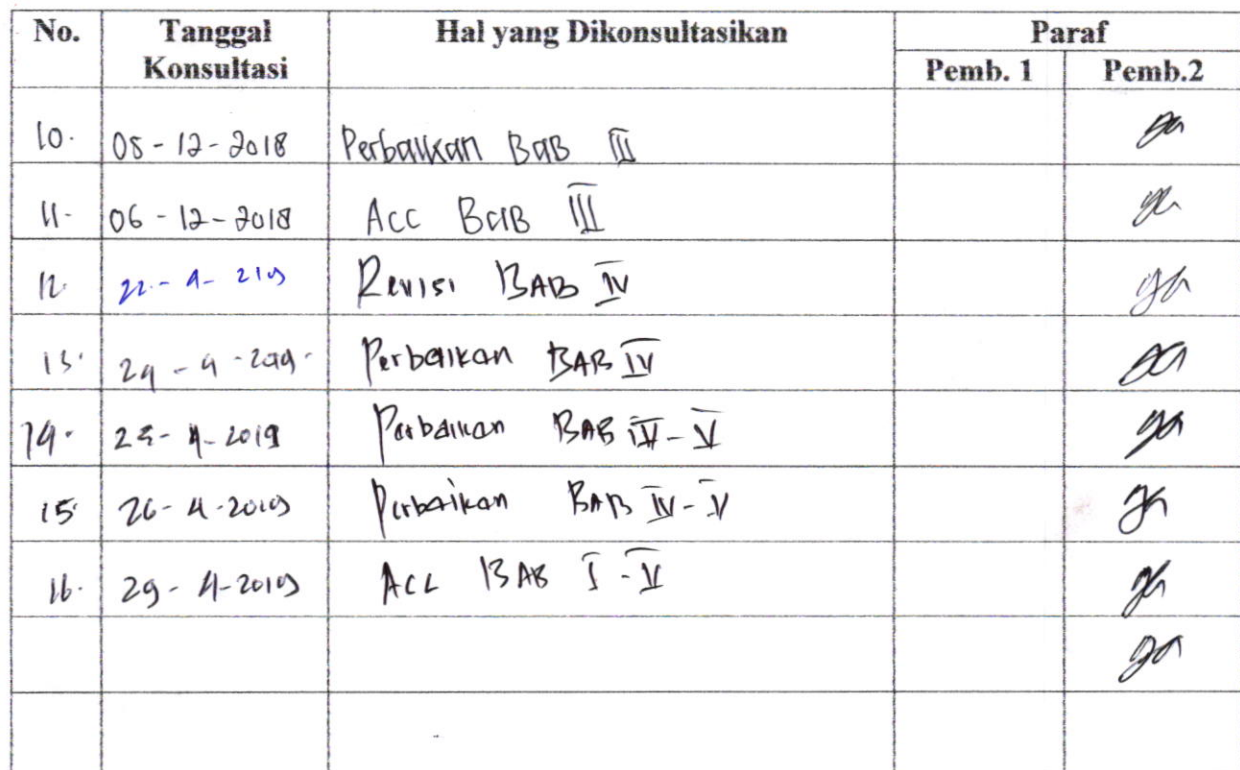 No. Tanggal Konsultasi Hal yang Dikonsultasikan Paraf
Pemb. 1 Pemb.2
10. 05-12-2018 Perbaikan BaB III
11. 06-12-2018 Acc BaB III
12. 22-4- Revisi BAB IV
13. 24-4-2019 Perbaikan BAB IV
14. 25-4-2019 Perbaikan BAB IV-V
15. 26-4-2019 Perbaikan BAB IV-V
16. 29-4-2019 Acc BAB I-V